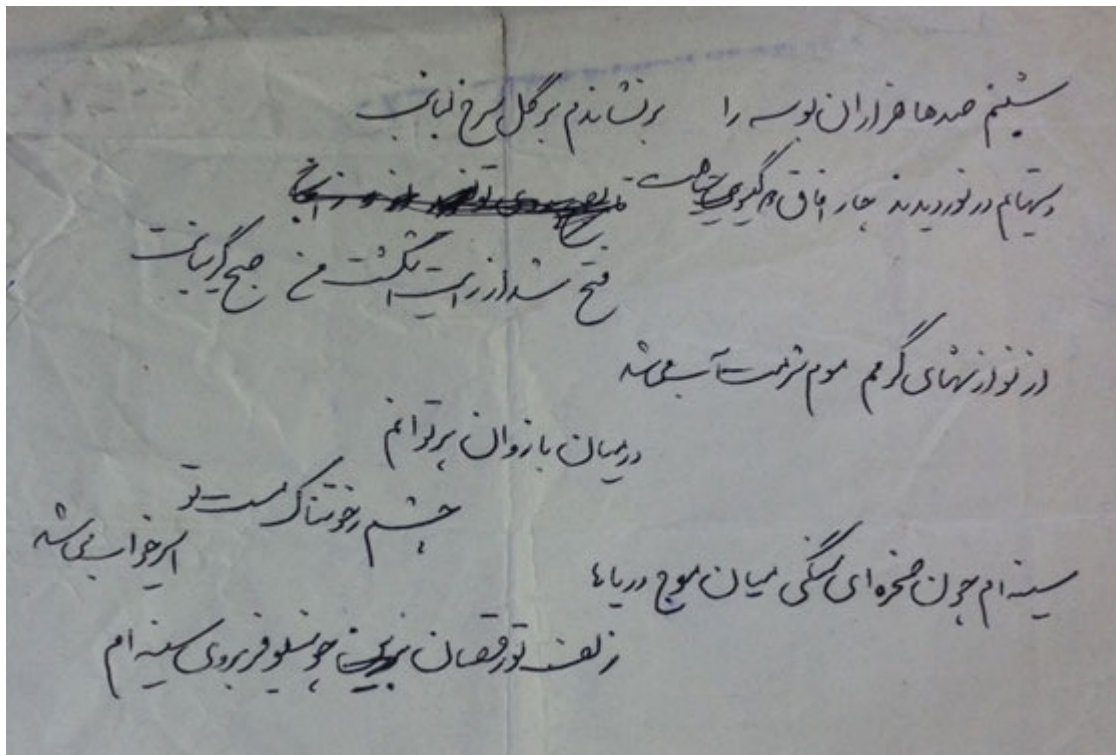 شبنم صدها هزاران بوسه را برنشاندم بر گل سرخ لبانت
دستهایم در نوردیدند چار آفاق گیسوی
فتح شد از رایت انگشت من صبح گریبانت
از نوازشهای گرمم موم شرمت آب می شد
در میان بازوان پرتوانم
چشم رخوتناک مست تو
اسیر خواب می شد
سینه ام چون صخره ای سنگی میان موج دریاها
زلف تو رقصان چو نیلوفر بروی سینه ام